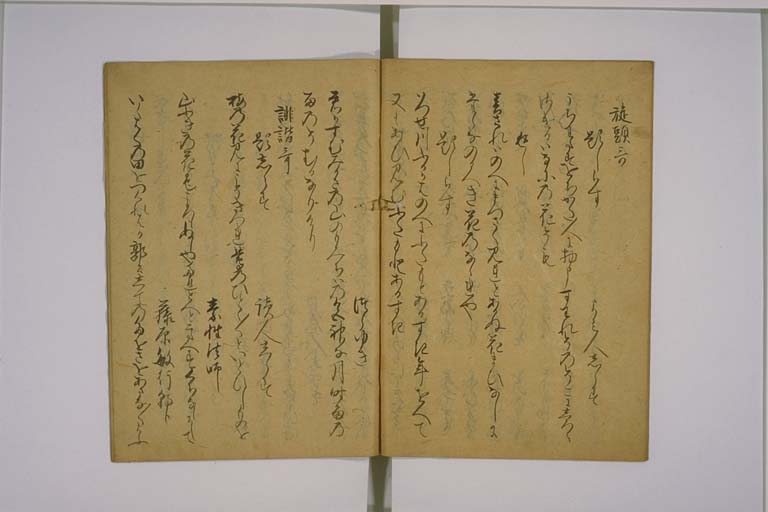 旋頭哥
題しらす　よみ人しらす
うちわたすをちかた人に物申すわれそのそこにしろく
さけるはなにの花そも
返し
春されはのへにまつさく見れとあかぬ花まひなしに
たゝなのるへき花のなゝれや
題しらす
はつせ川ふる川のへにふたもとあるすき年をへて
又もあひ見むふたもとあるすき
つらゆき
君かさすみかさの山のもみちはの色神な月時雨の
雨のそむるなりけり
誹諧哥
題しらす　読人しらす
梅の花見にこそきつれ鶯のひとく／＼といとひしもをる
素性法師
山ふきの花色ころもぬしやたれとへとこたへすくちなしにして
藤原敏行朝臣
いくはくの田をつくれはか郭公してのたをさをあさな／＼よふ